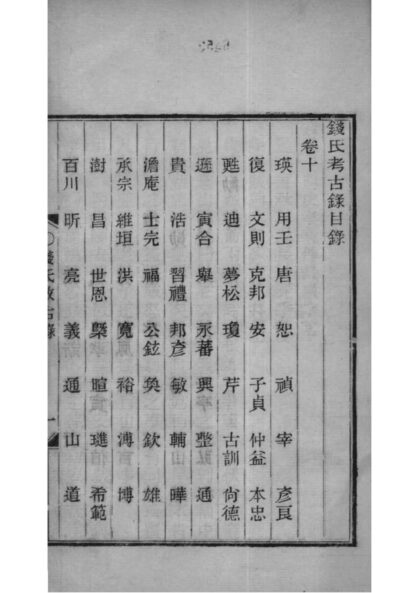 錢氏考古錄目錄
卷十
瑛 用壬 唐 恕 禎 宰 彥良
復 文則 克邦 安 子貞 仲益 本忠
甦 迪 夢松 瓊 芹 古訓 尙德
遜 寅合 舉 永蕃 興 整 通
貴 浩 習禮 邦彥 敏 輔 曄
澹庵 士完 福 公鉉 奐 欽 雄
承宗 維垣 洪 寬 裕 溥 博
澍 昌 世恩 槩 暄 璡 希範
百川 昕 亮 義 通 山 道
錢氏攷古錄
一